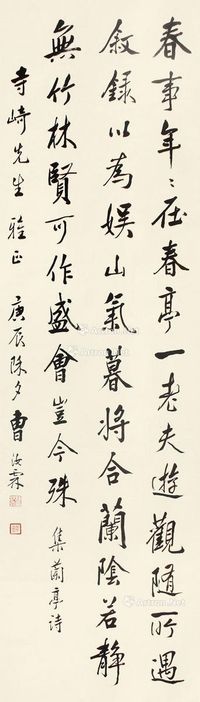 春事年々在春亭一老夫遊觀隨所遇
敘錄以為娛山氣暮將合蘭陰若靜
無竹林賢可作盛會豈今殊 集蘭亭詩
寺崎先生雅正 庚辰除夕曹汝霖